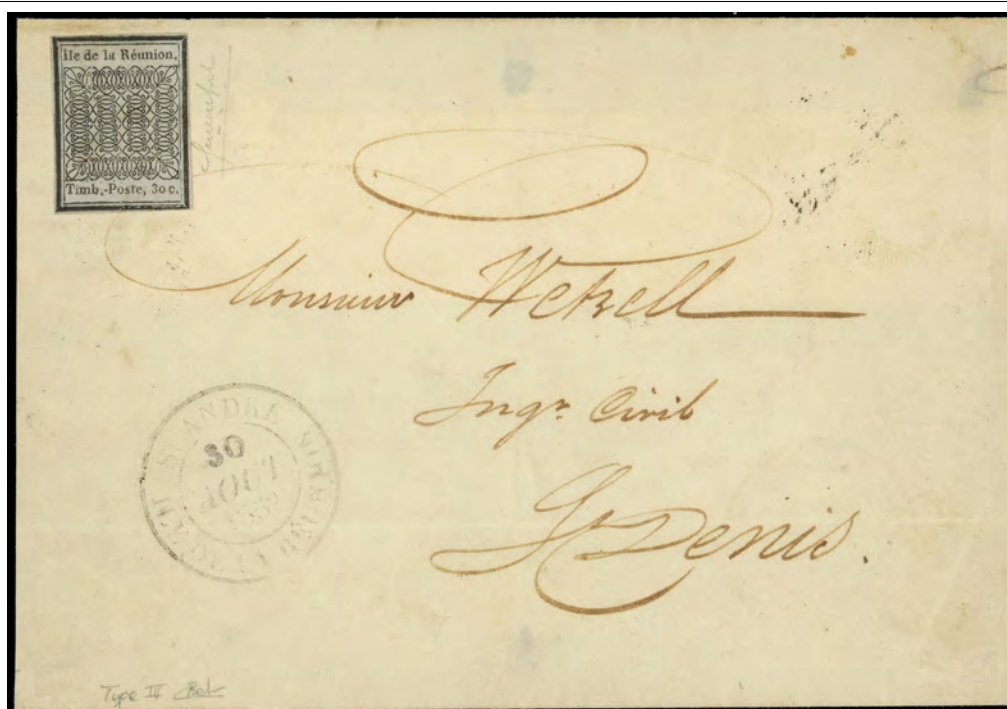 Ile de la Réunion.
Timb.-Poste, 30 c.
Monsieur Wetzell
Ingr Civil
St Denis.
ST ANDRÉ
30
AOUT
ILE DE LA RÉUNION
Type IV